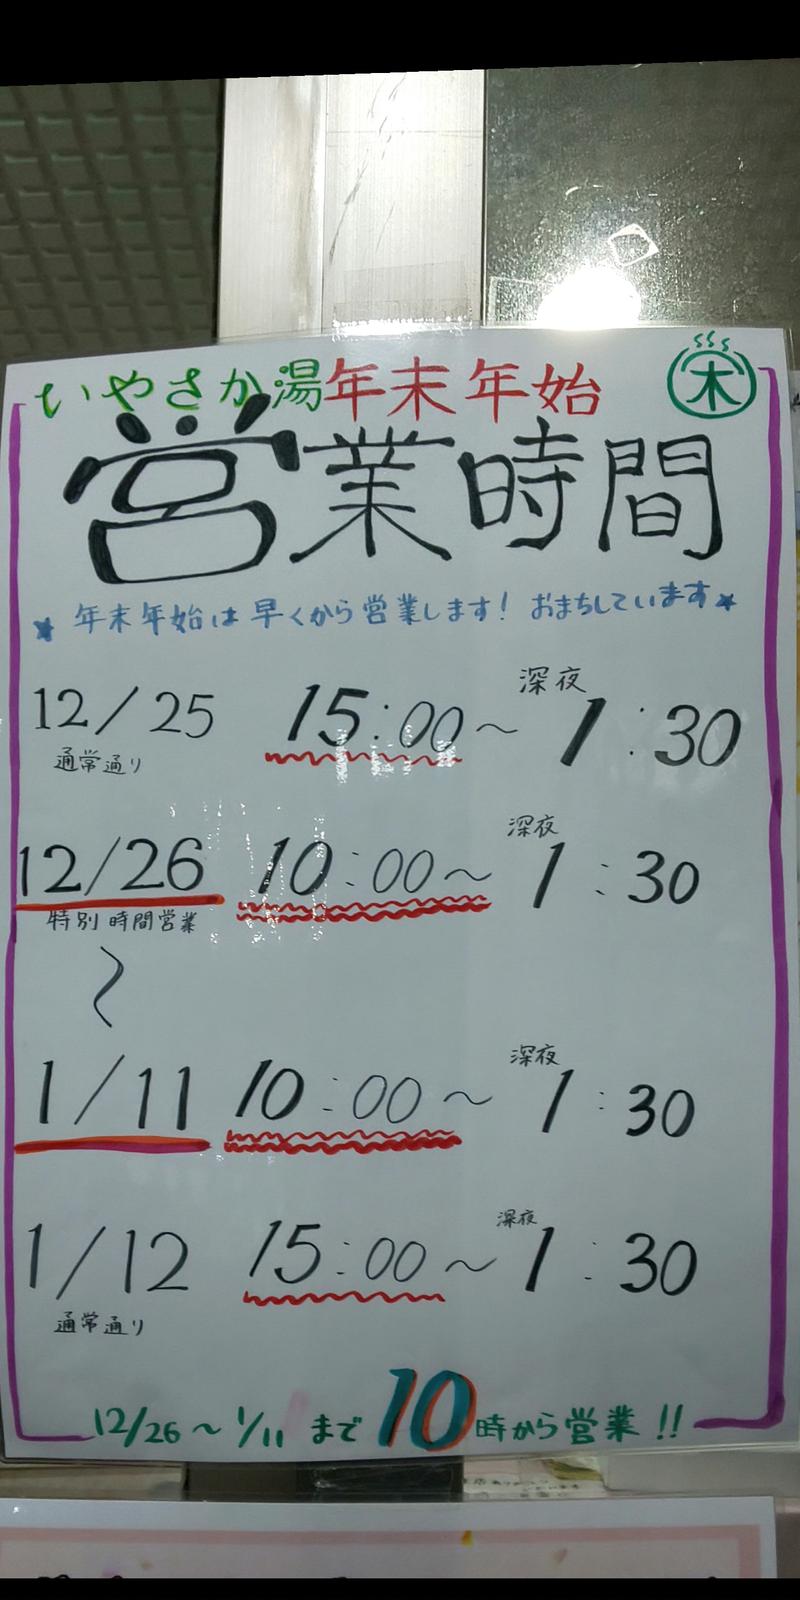 いやさか湯年末年始 木
営業時間
★年末年始は早くから営業します! おまちしています★
深夜
12/25 15:00～ 1:30
通常通り
深夜
12/26 10:00～ 1:30
特別時間営業
〜
深夜
1/11 10:00～ 1:30
深夜
1/12 15:00～ 1:30
通常通り
12/26～1/11まで10時から営業!!